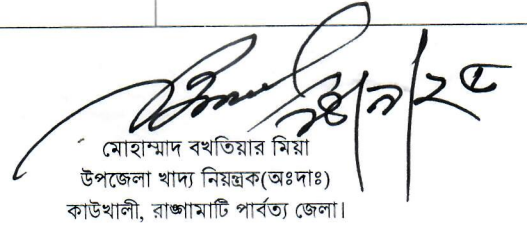 মোহাম্মাদ বখতিয়ার মিয়া
উপজেলা খাদ্য নিয়ন্ত্রক(অঃদাঃ)
কাউখালী, রাঙ্গামাটি পার্বত্য জেলা।